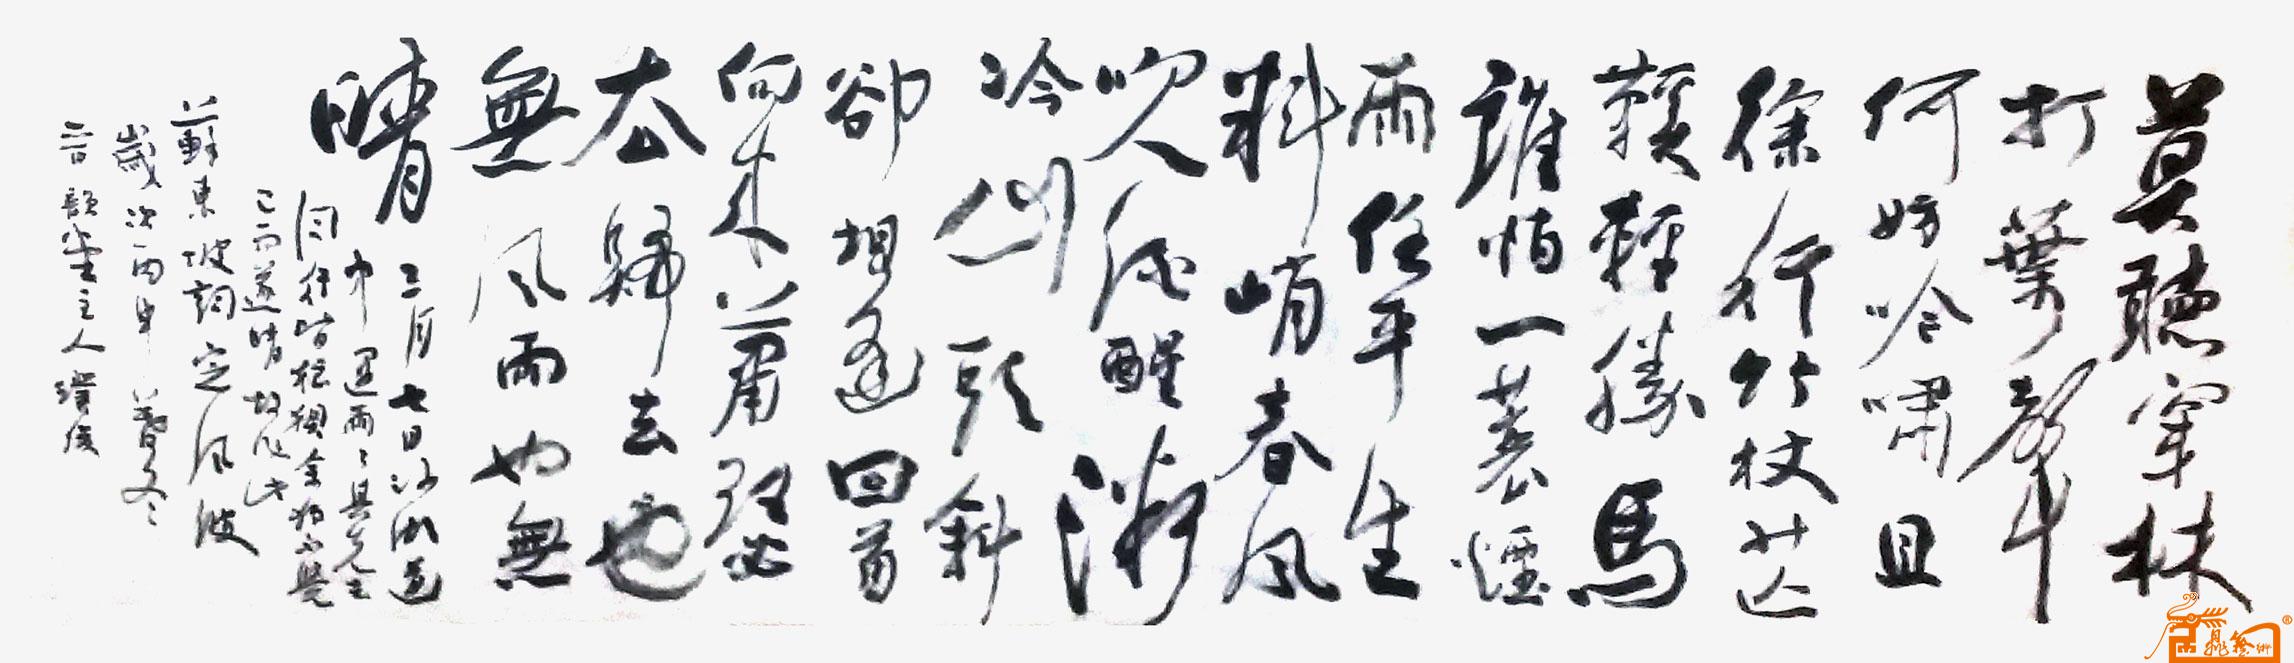 莫聽穿林
打葉聲
何妨吟嘯且
徐行竹杖芒
鞵輕勝馬
誰怕一蓑煙
雨任平生
料峭春風
吹酒醒微
冷山頭斜
卻相迎回首
向來蕭瑟
歸去也
無風雨也無
晴
三月七日沙湖道
中遇雨〻具先去
同行皆狼狽余獨不覺
已而遂晴故作此
蘇東坡詞定風波
歲次丙申暮冬
韻堂主人